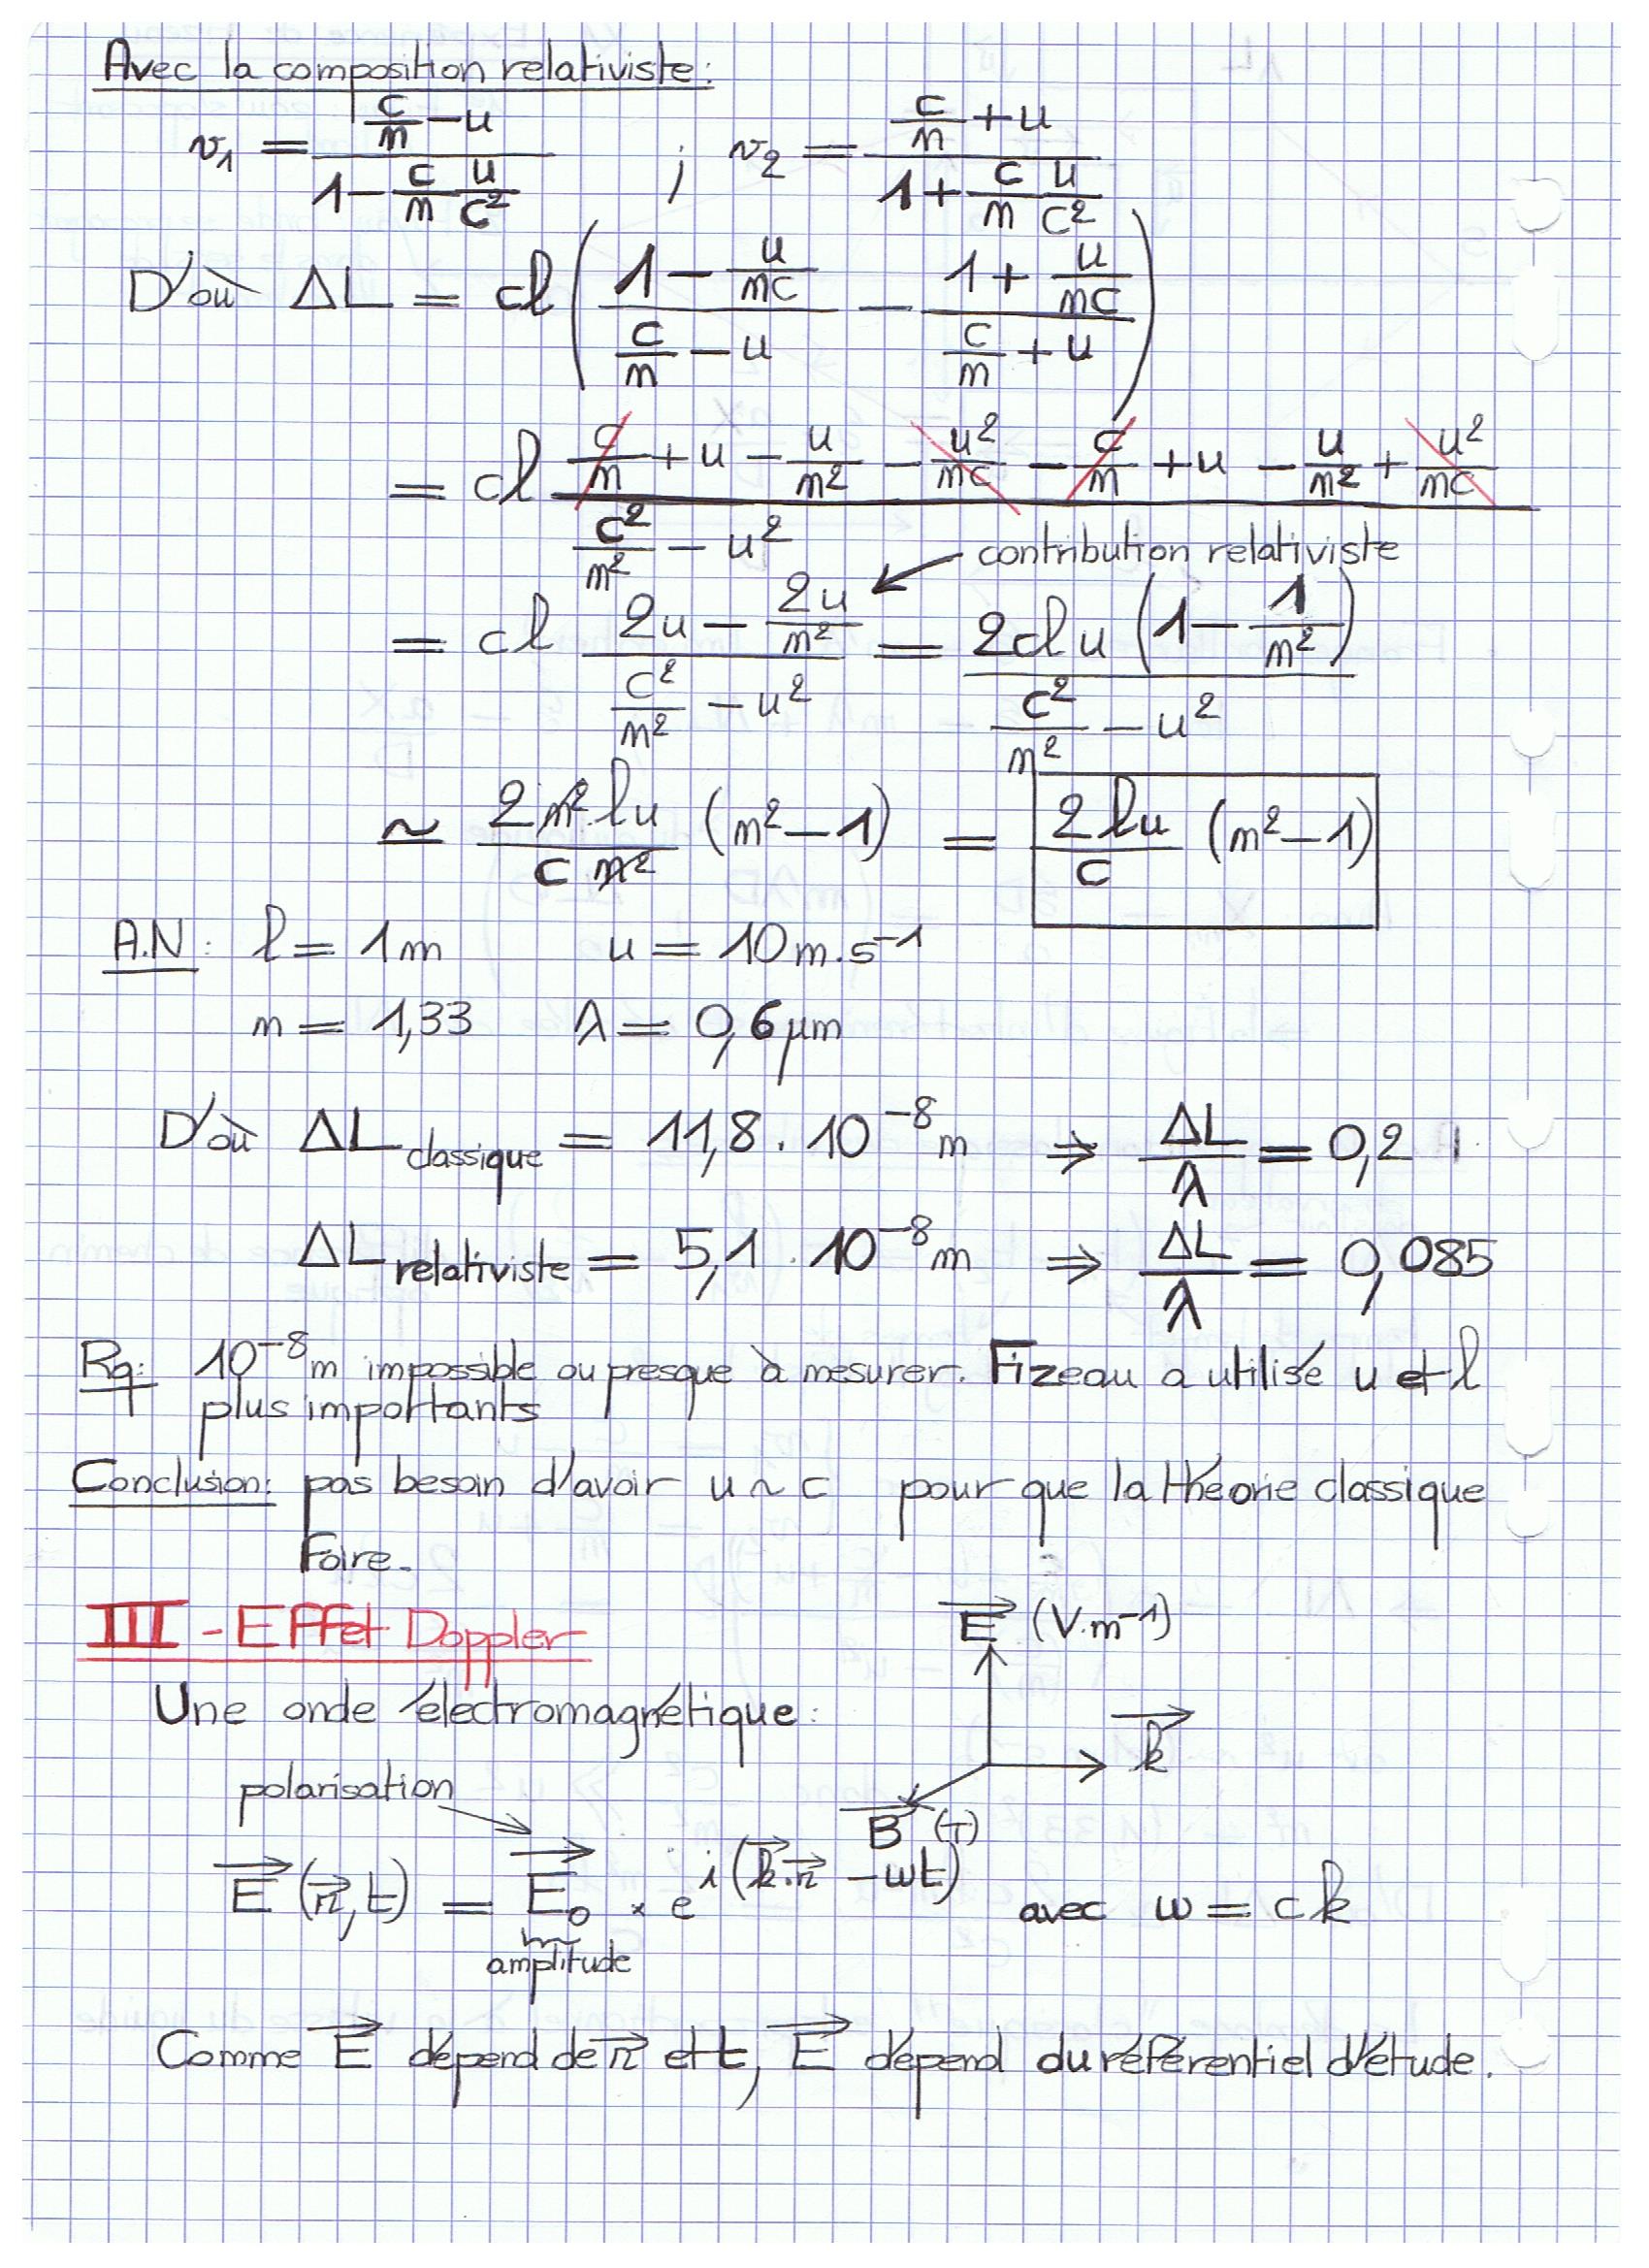 Avec la composition relativiste:
v₁ = (c/n − u)/(1 − c/n u/c²) ; v₂ = (c/n + u)/(1 + c/n u/c²)
D'où ΔL = cl ((1 − u/nc)/(c/n − u) − (1 + u/nc)/(c/n + u))
= cl (c/n + u − u/n² − u²/nc − c/n + u − u/n² + u²/nc)/(c²/n² − u²)
contribution relativiste
= cl (2u − 2u/n²)/(c²/n² − u²) = 2clu (1 − 1/n²)/(c²/n² − u²)
≃ 2n²lu/(c n²) (n²−1) = 2lu/c (n²−1)
A.N: l = 1m u = 10m.s⁻¹
n = 1,33 λ = 0,6µm
D'où ΔL classique = 11,8 . 10⁻⁸ m ⇒ ΔL/λ = 0,2
ΔL relativiste = 5,1 . 10⁻⁸ m ⇒ ΔL/λ = 0,085
Rq: 10⁻⁸m impossible ou presque à mesurer. Fizeau a utilisé u et l
plus importants
Conclusion: pas besoin d'avoir u ~ c pour que la théorie classique
foire.
III - Effet Doppler
E⃗ (V.m⁻¹)
Une onde électromagnétique:
k⃗
polarisation
B⃗ (T)
E⃗(r⃗,t) = E⃗₀ × e^i(k⃗.r⃗ − ωt) avec ω = ck
amplitude
Comme E⃗ dépend de r⃗ et t, E⃗ dépend du référentiel d'étude.